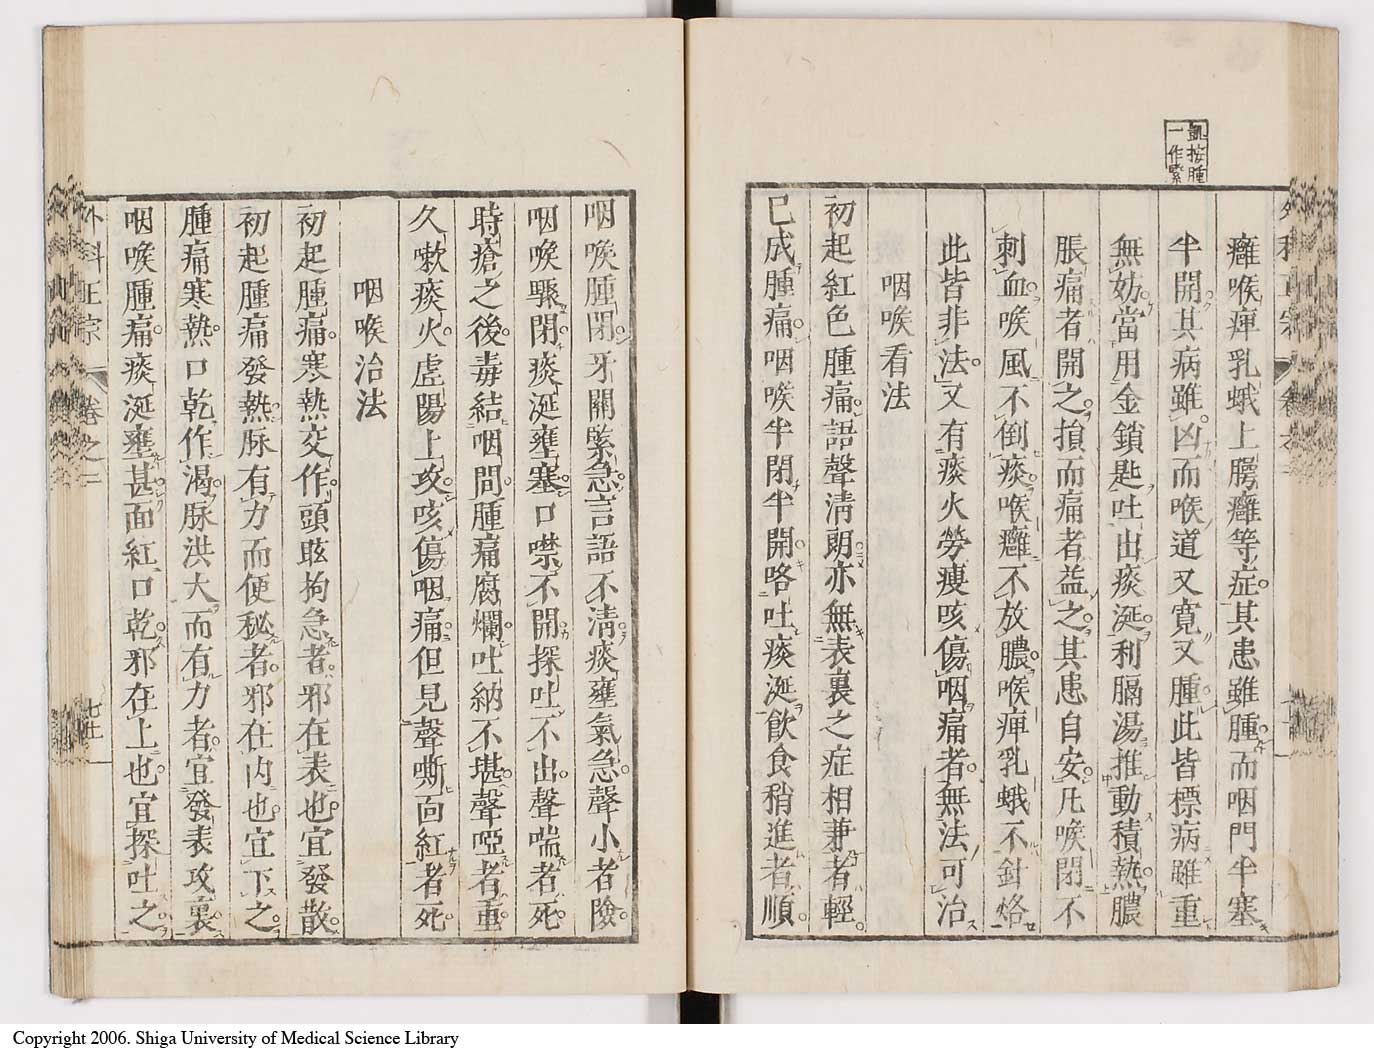 凱按腫
一作緊
癰喉痺乳蛾上腭癰等症其患雖腫而咽門半塞
半開其病雖凶而喉道又寬又腫此皆標病雖重
無妨當用金鎖匙吐出痰涎利膈湯推動積熱膿
脹痛者開之損而痛者益之其患自安凡喉閉不
刺血喉風不倒痰喉癰不放膿喉痺乳蛾不針烙
此皆非法又有痰火勞瘦咳傷咽痛者無法可治
咽喉看法
初起紅色腫痛語聲清朗亦無表裏之症相兼者輕
已成腫痛咽喉半閉半開咯吐痰涎飲食稍進者順
咽喉腫閉牙關緊急言語不清痰壅氣急聲小者險
咽喉驟閉痰涎壅塞口噤不開探吐不出聲喘者死
時瘡之後毒結咽間腫痛腐爛吐納不堪聲啞者重
久嗽痰火虛陽上攻咳傷咽痛但見聲嘶面紅者死
咽喉治法
初起腫痛寒熱交作頭眩拘急者邪在表也宜發散
初起腫痛發熱脉有力而便秘者邪在内也宜下之
腫痛寒熱口乾作渴脉洪大而有力者宜發表攻裏
咽喉腫痛痰涎壅甚面紅口乾邪在上也宜探吐之
外科正宗 卷之二
Copyright 2006. Shiga University of Medical Science Library